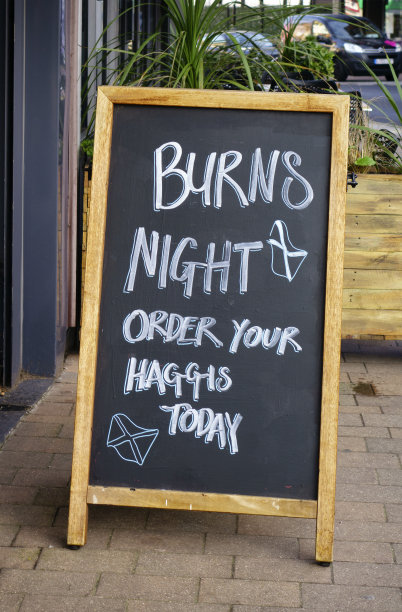 BURNS
NIGHT
ORDER YOUR
HAGGIS
TODAY